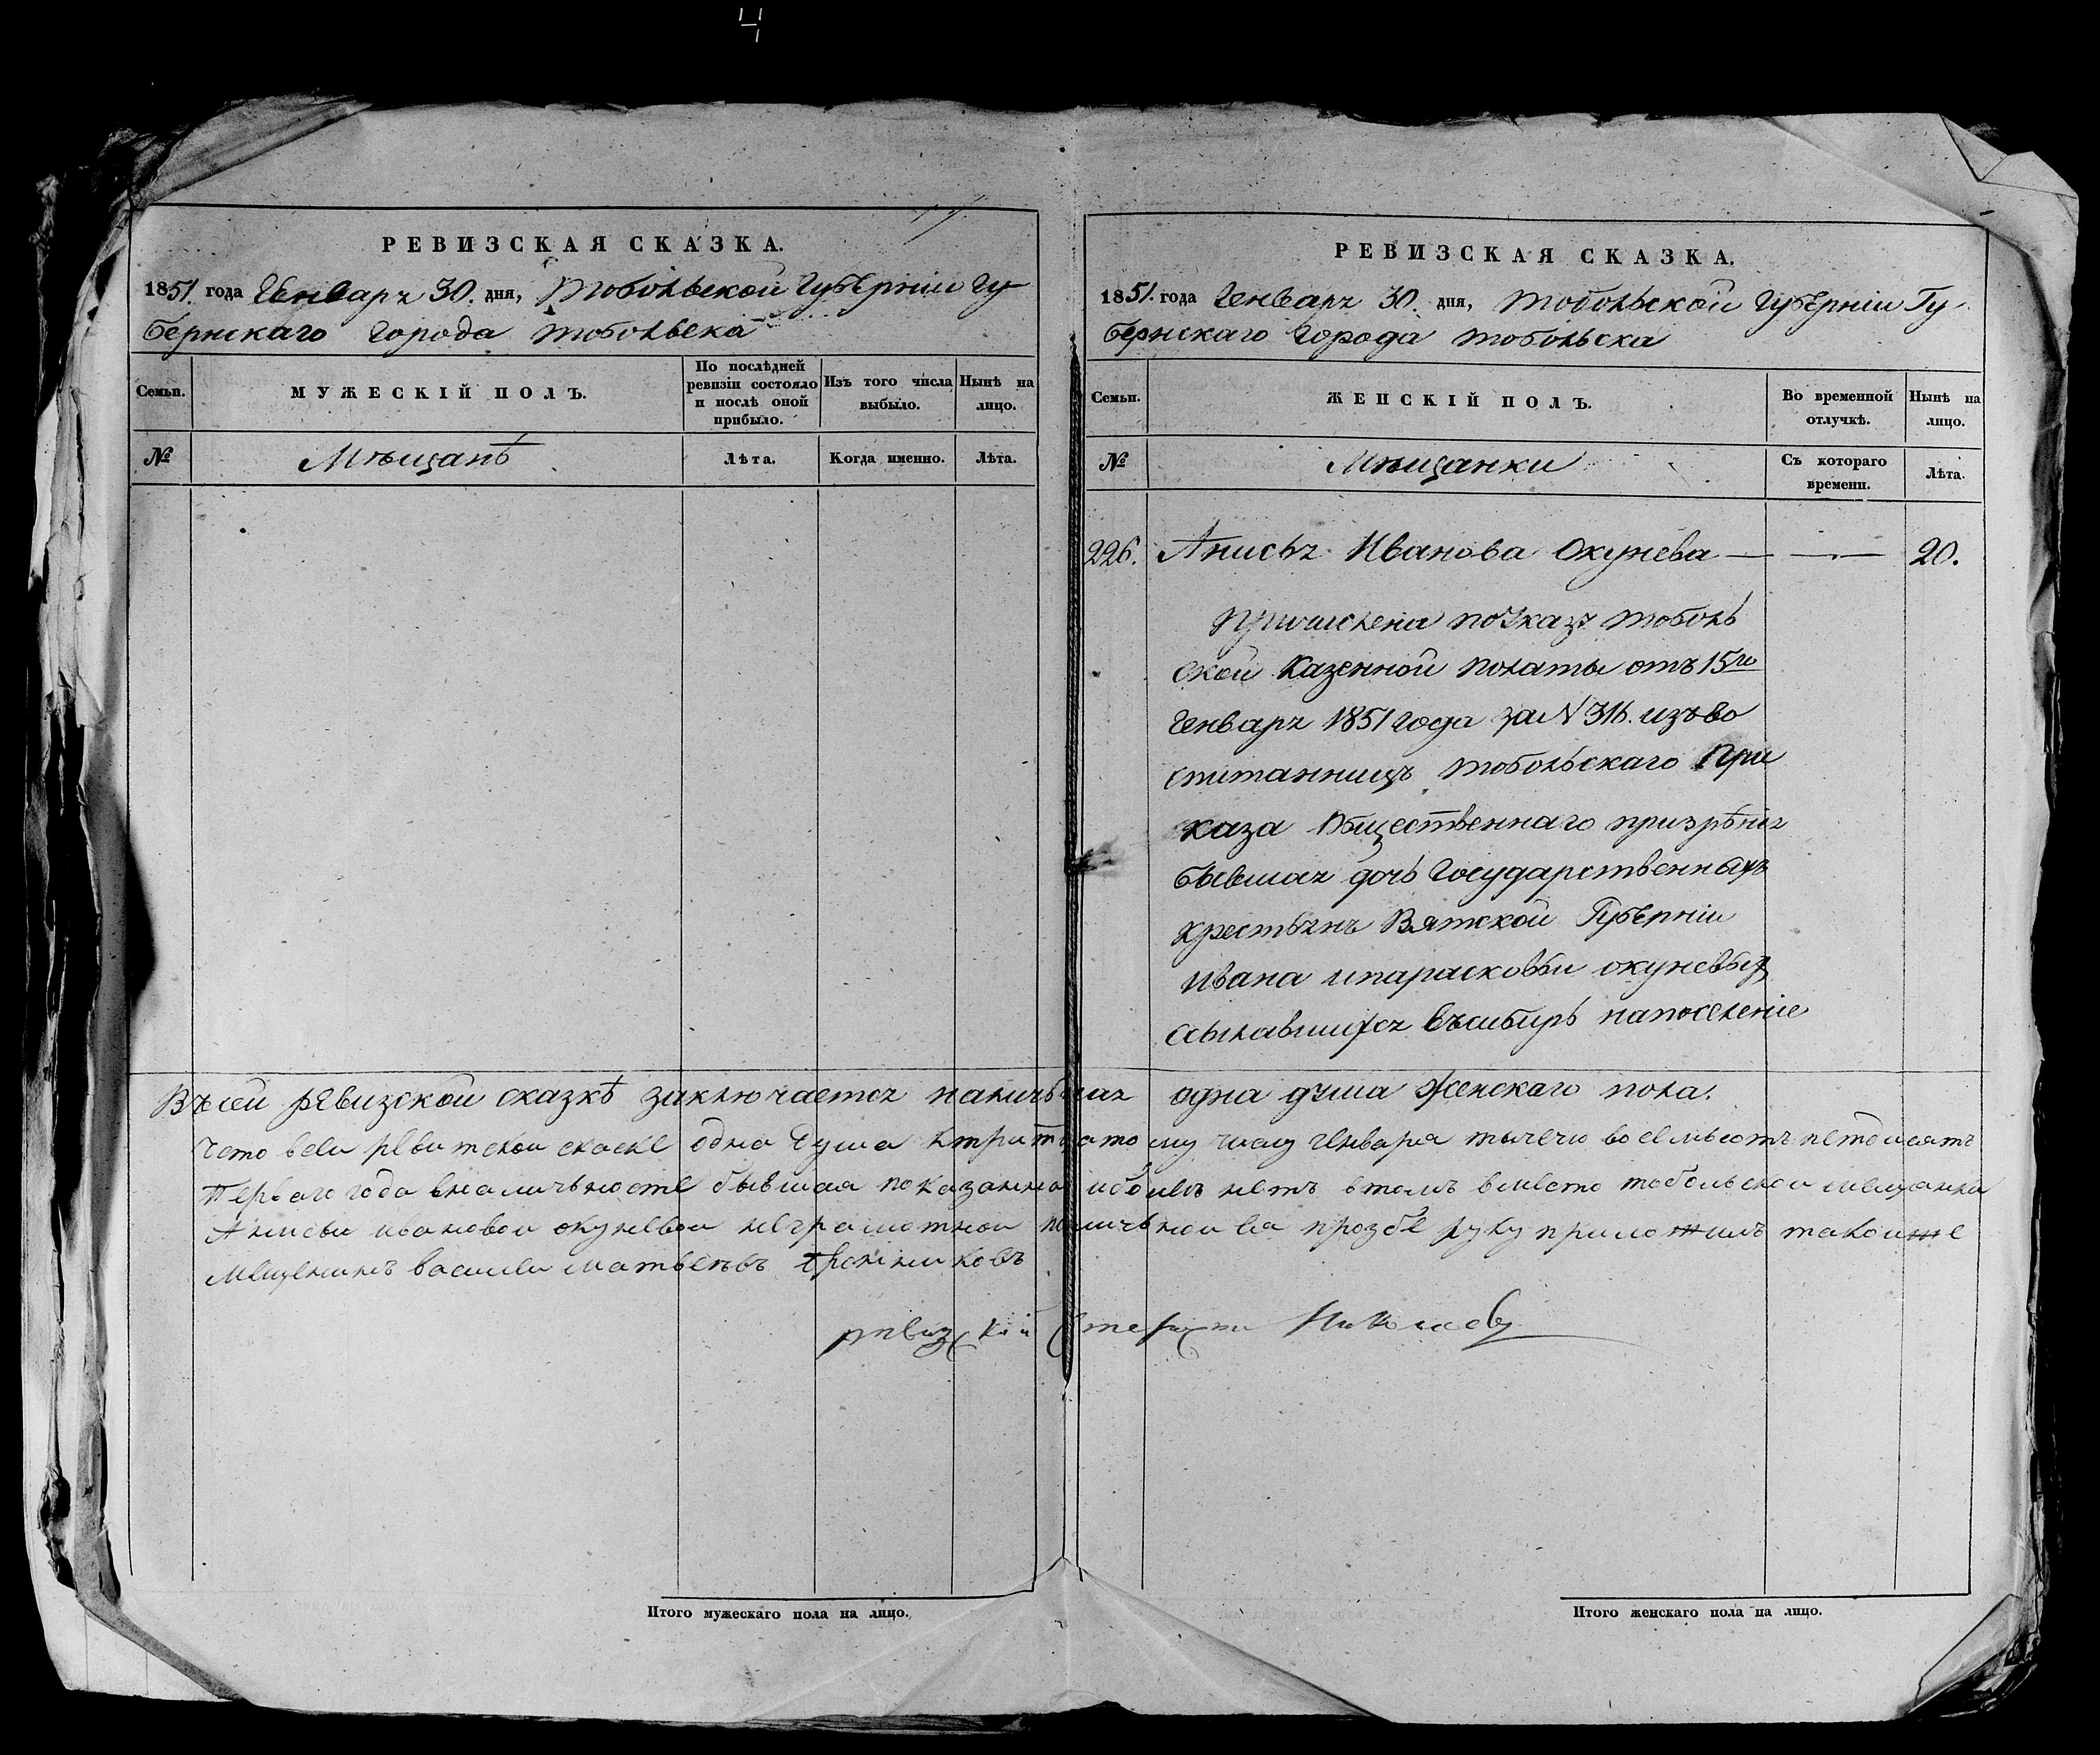 РЕВИЗСКАЯ СКАЗКА.
1851 года Генваря 30. дня, Тобольской Губерніи Гу-
бернскаго Города Тобольска
Семьи.
МУЖЕСКІЙ ПОЛЪ.
По послѣдней ревизіи состояло и послѣ оной прибыло.
Изъ того числа выбыло.
Нынѣ на лицо.
№
Мѣщанѣ
Лѣта.
Когда именно.
Лѣта.
РЕВИЗСКАЯ СКАЗКА.
1851. года Генваря 30. дня, Тобольской Губерніи Гу-
бернскаго Города Тобольска
Семьи.
ЖЕНСКІЙ ПОЛЪ.
Во временной отлучкѣ.
Нынѣ на лицо.
№
Мѣщанки
Съ котораго времени.
Лѣта.
226. Анисья Иванова Окунева — — 20.
Причислена по Указу Тоболь
ской Казенной Полаты отъ 15го
Генваря 1851 года за N 316. изъ во
спитанницъ Тобольскаго При
каза Общественнаго призрѣнія
бывшая дочь Государственныхъ
крестьянъ Вятской Губерніи
Ивана и парасковьи окуневыхъ
ссылавшихся въ сибирь на поселеніе
Въ сей ревизской сказкѣ заключается наличьная одна душа женскаго пола.
Что всеи ревитской скаске одна душа ктритцатому числу генваря тычечю воселмьсотъ петдисятъ
Первого года вналичьносте бывшая показанна ибоиехъ нетъ втомъ вместо тобольской мещанки
Анисьи ивановои окуневои неграмотнои поличьнои еа прозбе руку приложилъ такоиже
мещенинъ васи­леи матвеевъ
ревизской староста Николаевъ
Итого мужескаго пола на лицо.
Итого женскаго пола на лицо.